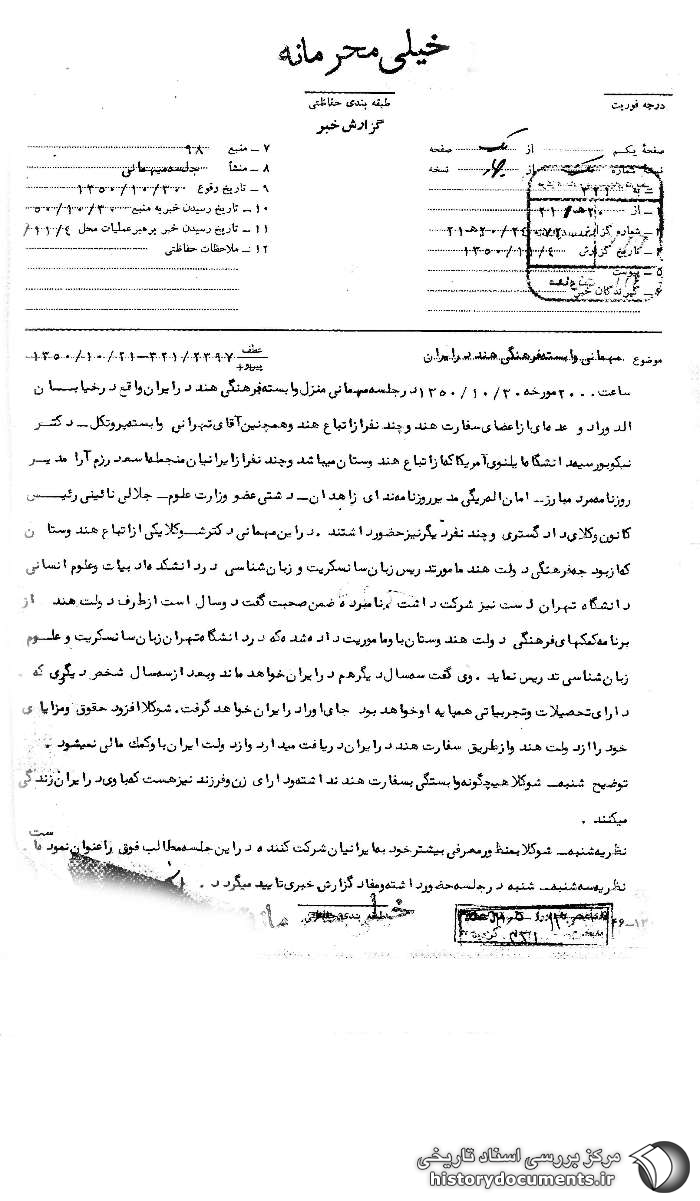 خیلی محرمانه
درجه فوریت
طبقه بندی حفاظتی
گزارش خبر
صفحهٔ یکم از یک صفحه
نسخهٔ شماره از نسخه
به ۳۲۱
از ۲۰ هـ ۲۱
شماره گزارش
تاریخ گزارش
۵ـ پیوست
۶ـ گیرندگان خبر
۷ ـ منبع ۹۸
۸ ـ منشأ جلسه میهمانی
۹ ـ تاریخ وقوع ۱۳۵۰/۱۰/۳۰
۱۰ ـ تاریخ رسیدن خبر به منبع ۵۰/۱۰/۳۰
۱۱ ـ تاریخ رسیدن خبر برهبر عملیات محل ۱۱/٤/
۱۲ ـ ملاحظات حفاظتی
موضوع مهمانی وابسته فرهنگی هند در ایران
عطف
پیرو ۳۲۱/۲۳۹۷ـ۱۳۵۰/۱۰/۲۱
ساعت ۲۰۰۰ مورخه ۱۳۵۰/۱۰/۳۰ در جلسه میهمانی منزل وابسته فرهنگی هند در ایران واقع در خیابان
الدوراد و عده‌ای از اعضای سفارت هند و چند نفر از اتباع هند و همچنین آقای تهرانی وابسته پروتکل ـ دکتر
نیکوپور سید انشگاه ایلنوی آمریکا که از اتباع هندوستان میباشد و چند نفر از ایرانیان منجمله اسعد رزم آرا مدیر
روزنامه مرد مبارز ـ امان اله ریگی مدیر روزنامه ندای زاهدان ـ دشتی عضو وزارت علوم ـ جلالی نائینی رئیس
کانون وکلای دادگستری و چند نفر دیگر نیز حضور داشتند . در این مهمانی دکتر شوکلا یکی از اتباع هندوستان
که از بودجه فرهنگی دولت هند مامور تدریس زبان سانسکریت و زبان شناسی در دانشکده ادبیات و علوم انسانی
دانشگاه تهران است نیز شرکت داشت نامبرده ضمن صحبت گفت دو سال است از طرف دولت هند از
برنامه کمکهای فرهنگی دولت هندوستان باو ماموریت داده شده که در دانشگاه تهران زبان سانسکریت و علوم
زبان شناسی تدریس نماید . وی گفت سه سال دیگر هم در ایران خواهد ماند و بعد از سه سال شخص دیگری که
دارای تحصیلات و تجربیاتی همپایه او خواهد بود جای او را در ایران خواهد گرفت. شوکلا افزود حقوق و مزایای
خود را از دولت هند و از طریق سفارت هند در ایران دریافت میدارد و از دولت ایران باو کمک مالی نمیشود .
توضیح شنبه ـ شوکلا هیچگونه وابستگی بسفارت هند نداشته و دارای زن و فرزند نیز هست که با وی در ایران زندگی
میکنند .
نظریه شنبه ـ شوکلا بمنظور معرفی بیشتر خود به ایرانیان شرکت کننده در این جلسه مطالب فوق را عنوان نموده است .
نظریه سه شنبه ـ شنبه در جلسه حضور داشته و مفاد گزارش خبری تایید میگردد .
طبقه بندی حفاظتی
مرکز بررسی اسناد تاریخی
historydocuments.ir